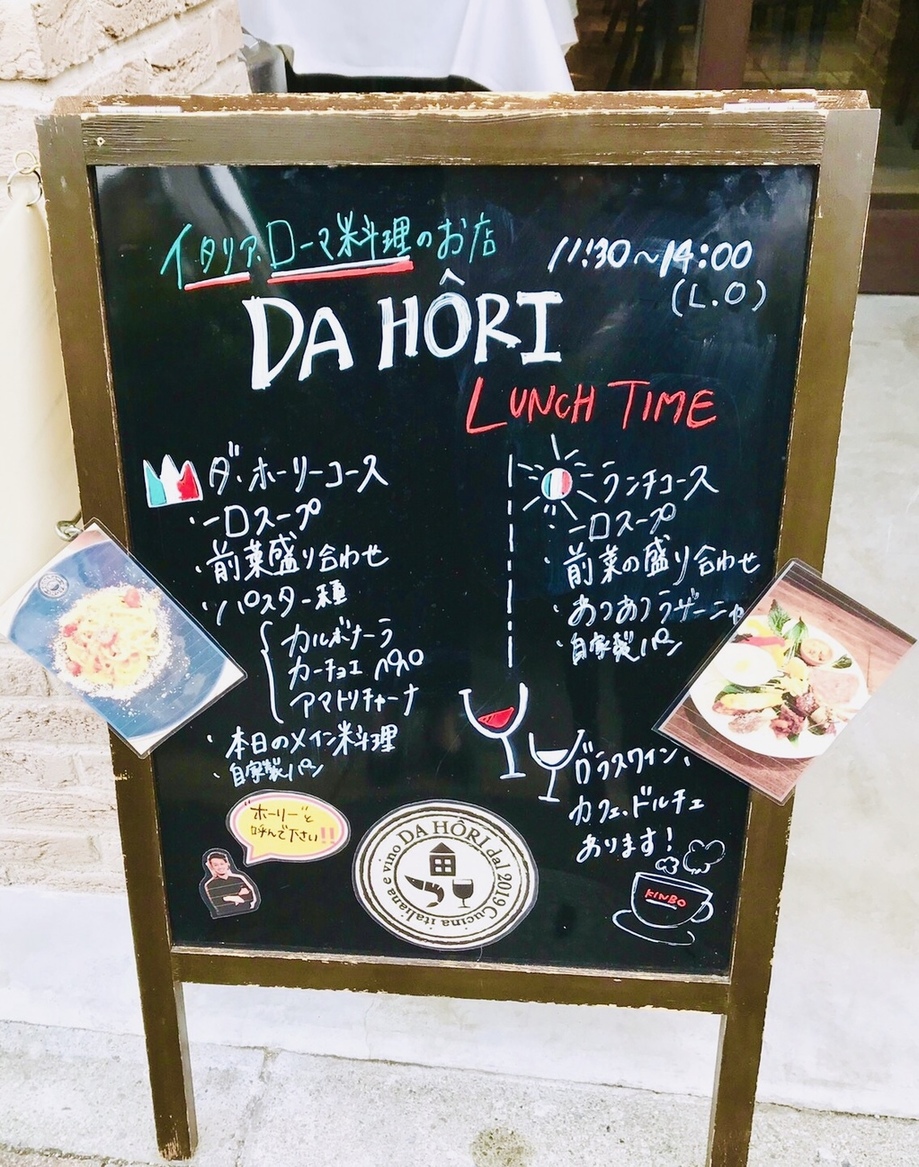 イタリア、ローマ料理のお店
11:30～14:00
(L.O)
DA HÔRI
LUNCH TIME
ダ・ホーリーコース
・一口スープ
・前菜盛り合わせ
・パスタ一種
カルボナーラ
カーチョエペペ
アマトリチャーナ
・本日のメイン料理
・自家製パン
ランチコース
・一口スープ
・前菜の盛り合わせ
・あつあつラザーニャ
・自家製パン
グラスワイン、
カフェ、ドルチェ
あります!
"ホーリー"と
呼んで下さい!!
DA HÔRI dal 2019 Cucina italiana e vino
KINBO